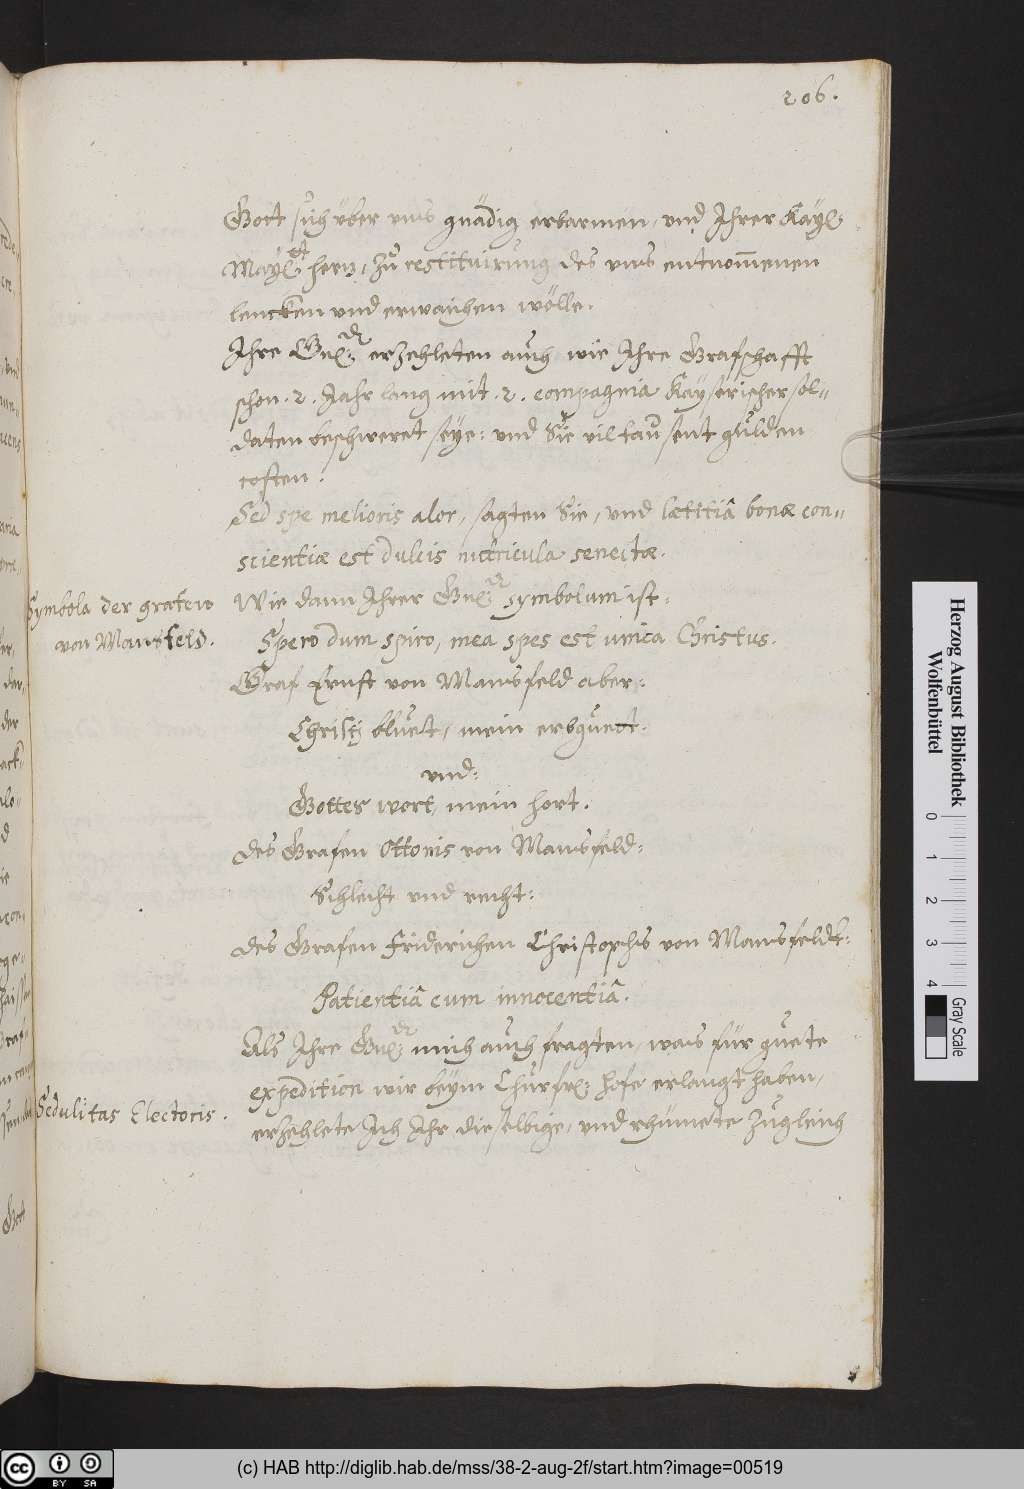 206.
Gott sich über vns gnädig erbarmen, vnd Ihrer Kayß:
Mayß:tt herz, zu restituirung des vns entnommenen
lencken vnd erwaichen wölle.
Ihre Gn: erzehleten auch, wie Ihre Grafschafft
schon .2. Jahr lang mit .2. compagnia Kayserischer sol=
daten beschweret seye: vnd Sie vil tausent gulden
costen.
Sed spe melioris alor, sagten Sie, vnd lætitiâ bonæ con=
scientiæ est dulcis nutricula senectæ.
Symbola der grafen
von Mansfeld.
Wie dann Ihrer Gn: symbolum ist:
Spero dum spiro, mea spes est unica Christus.
Graf Ernst von Mansfeld aber:
Christj bluet, mein erbguett:
vnd:
Gottes wort, mein hort.
des Grafen Ottonis von Mansfeld:
Schlecht vnd recht:
des Grafen Friderichen Christophs von Mansfeldt:
Patientiâ cum innocentiâ.
Als Ihre Gn: mich auch fragten, was für guete
expedition wir beÿm Churfr: hofe erlangt haben,
Sedulitas Electoris.
erzehlete Ich Ihr dieselbige, vnd rhümete zugleich
Herzog August Bibliothek
Wolfenbüttel
0 1 2 3 4
Gray Scale
(c) HAB http://diglib.hab.de/mss/38-2-aug-2f/start.htm?image=00519
cc BY SA